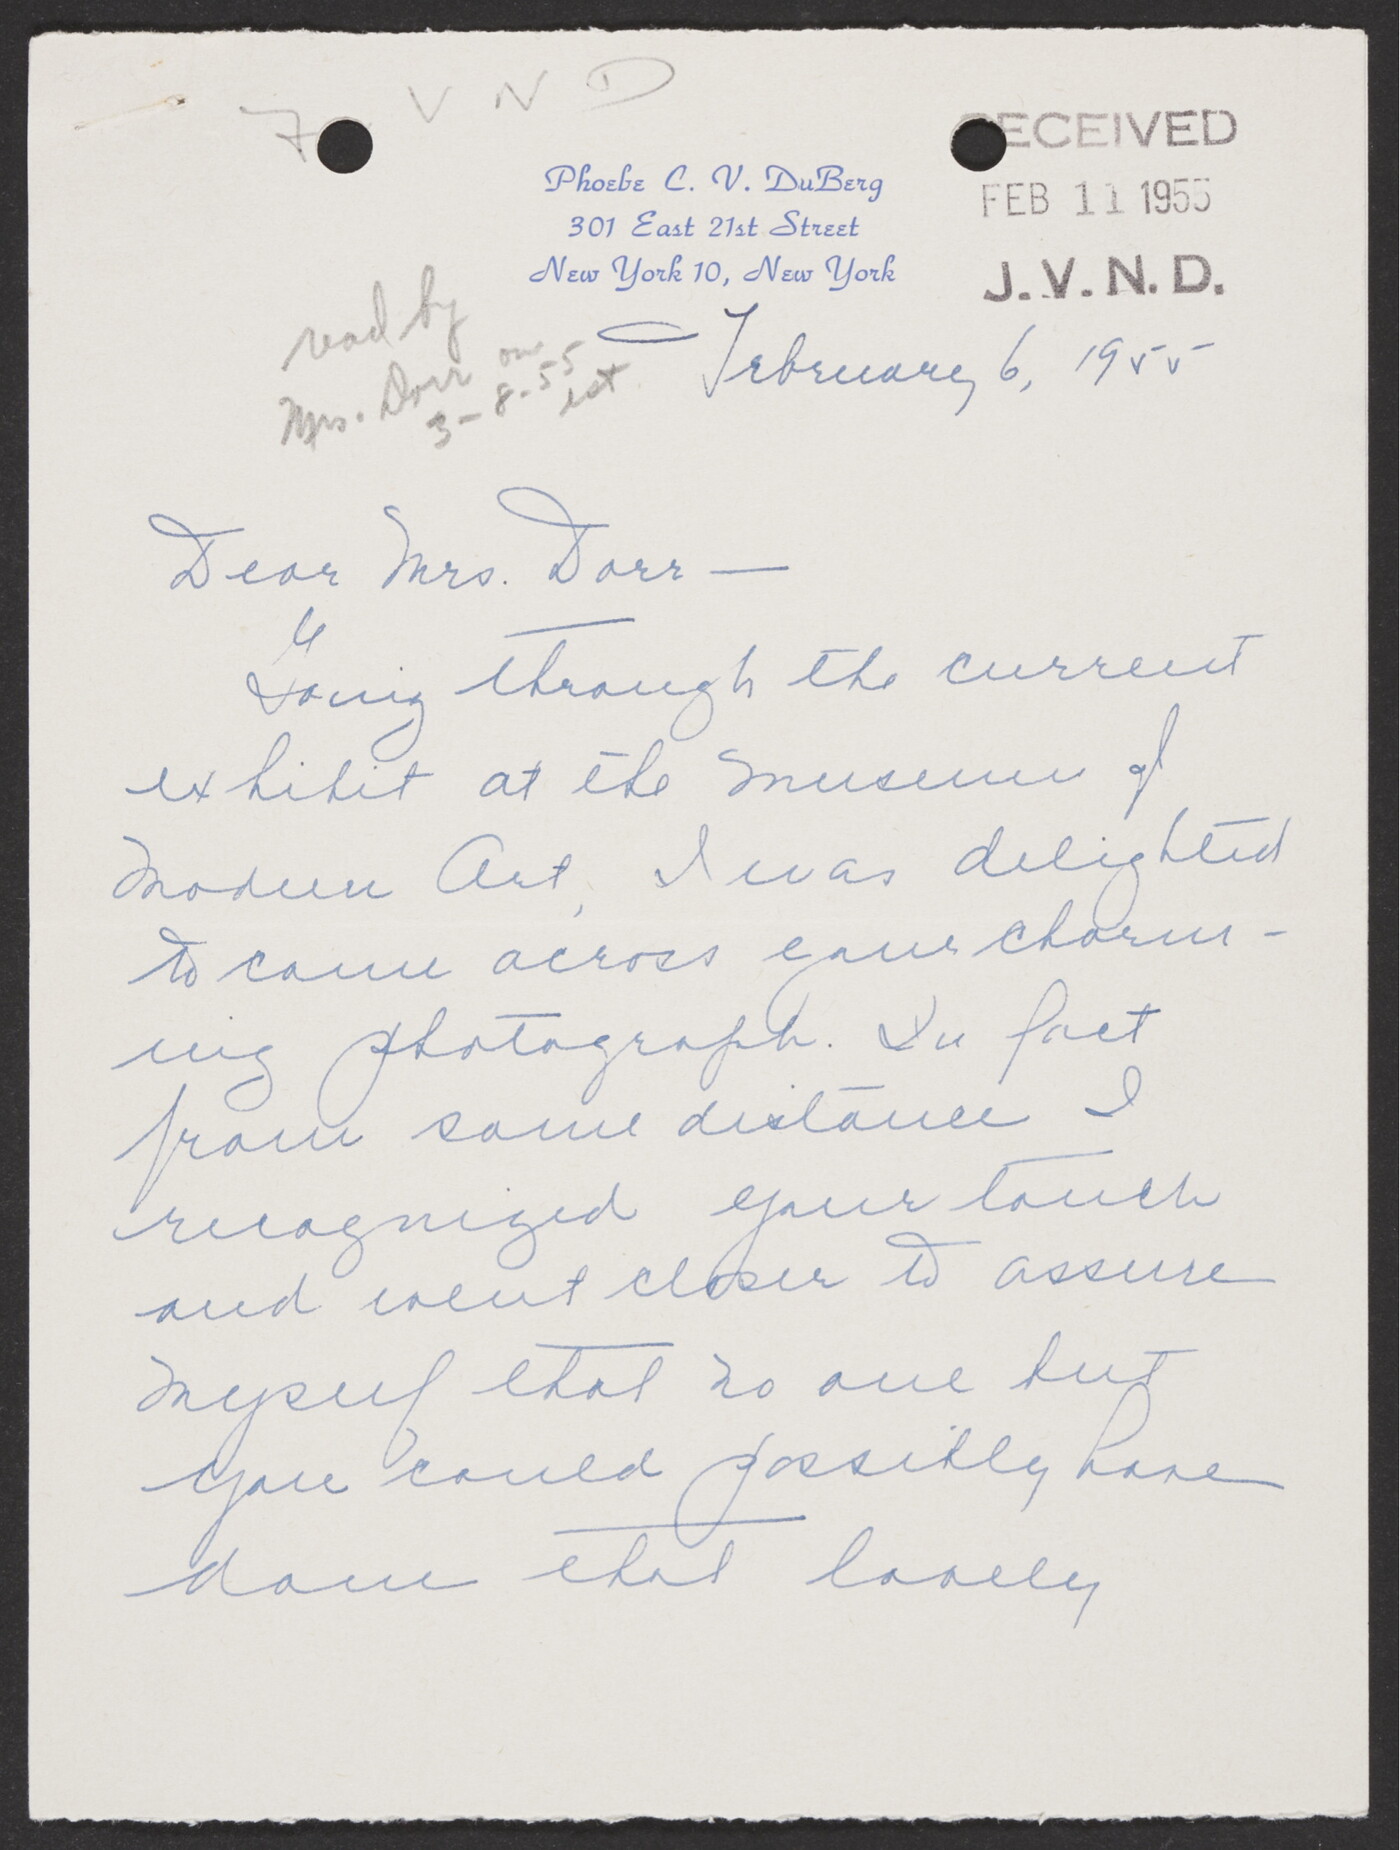 7 V N D
RECEIVED
FEB 11 1955
J.V.N.D.
Phoebe C. V. DuBerg
301 East 21st Street
New York 10, New York
read by
Mrs. Dorr on
3-8-55
February 6, 1955
Dear Mrs. Dorr —
Going through the current
exhibit at the Museum of
Modern Art, I was delighted
to come across your charm-
ing photograph. In fact
from some distance I
recognized your touch
and went closer to assure
myself that no one but
you could possibly have
done that lovely